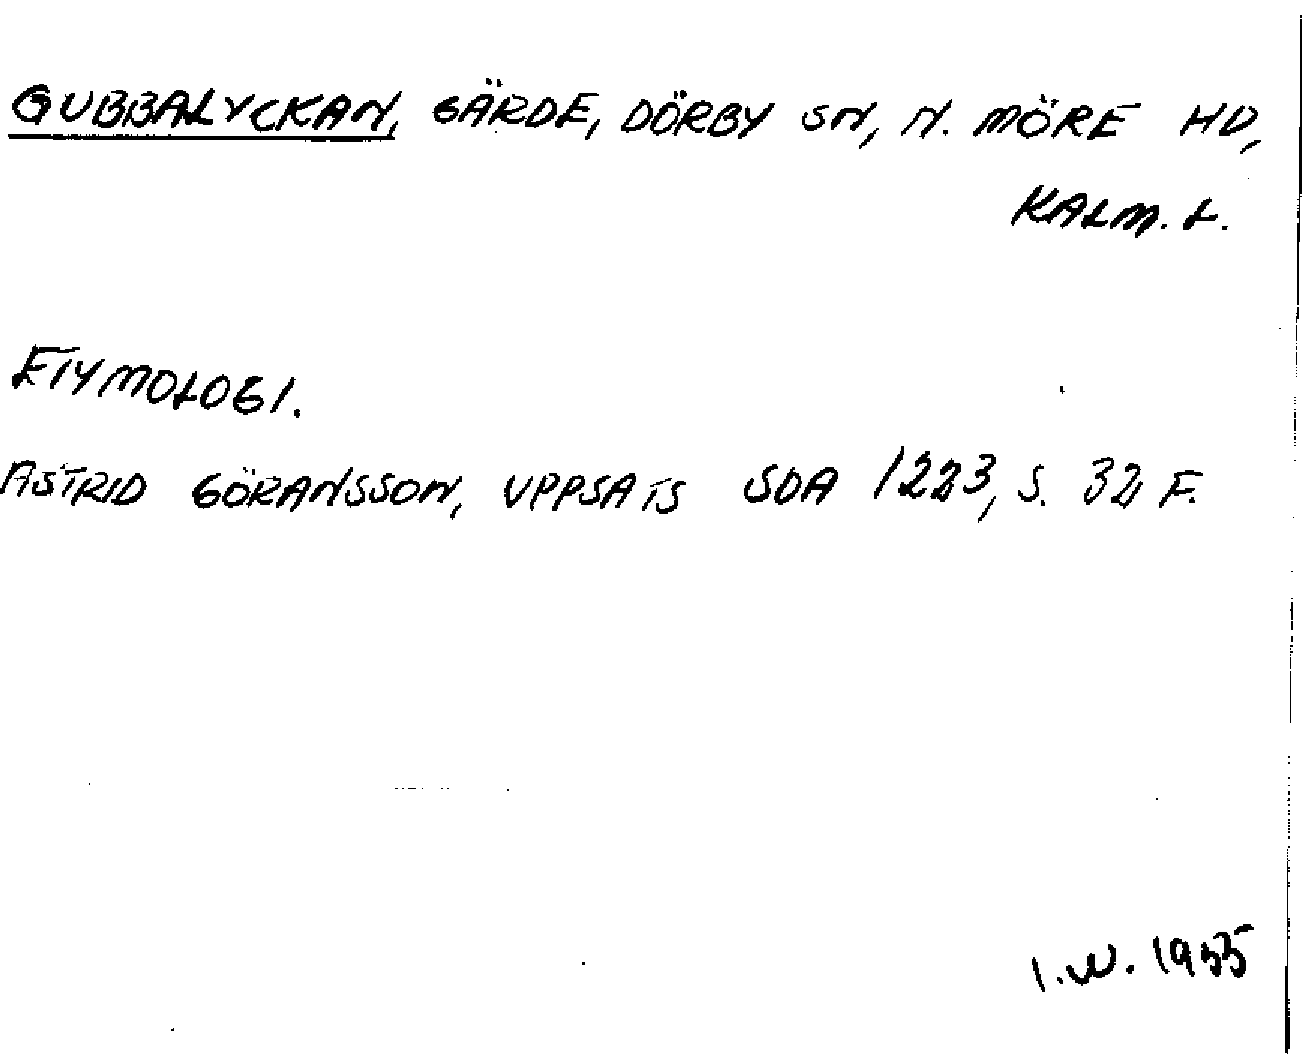 GUBBALYCKAN, GÄRDE, DÖRBY SN, N. MÖRE HD,
KALM. L.
ETYMOLOGI.
ASTRID GÖRANSSON, UPPSATS SOA 1223, S. 32 F.
I.W. 1955